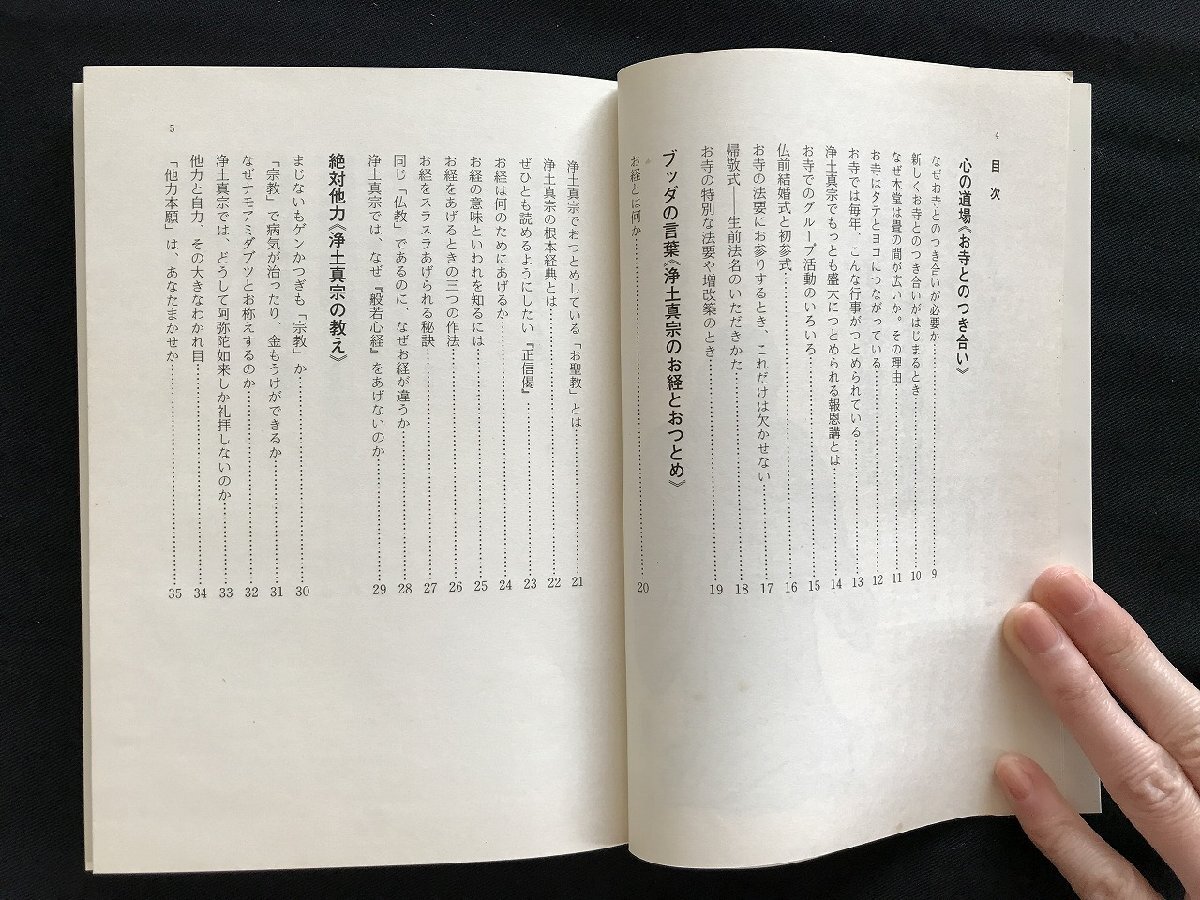 4
目次
心の道場《お寺とのつき合い》
なぜお寺とのつき合いが必要か……9
新しくお寺とのつき合いがはじまるとき……10
なぜ本堂は畳の間が広いか。その理由……11
お寺はタテとヨコにつながっている……12
お寺では毎年、こんな行事がつとめられている……13
浄土真宗でもっとも盛大につとめられる報恩講とは……14
お寺でのグループ活動のいろいろ……15
仏前結婚式と初参式……16
お寺の法要にお参りするとき、これだけは欠かせない……17
帰敬式――生前法名のいただきかた……18
お寺の特別な法要や増改築のとき……19
ブッダの言葉《浄土真宗のお経とおつとめ》
お経とは何か……20
5
浄土真宗でおつとめしている「お聖教」とは……21
浄土真宗の根本経典とは……22
ぜひとも読めるようにしたい『正信偈』……23
お経は何のためにあげるか……24
お経の意味といわれを知るには……25
お経をあげるときの三つの作法……26
お経をスラスラあげられる秘訣……27
同じ「仏教」であるのに、なぜお経が違うか……28
浄土真宗では、なぜ『般若心経』をあげないのか……29
絶対他力《浄土真宗の教え》
まじないもゲンかつぎも「宗教」か……30
「宗教」で病気が治ったり、金もうけができるか……31
なぜナモアミダブツとお称えするのか……32
浄土真宗では、どうして阿弥陀如来しか礼拝しないのか……33
他力と自力、その大きなわかれ目……34
「他力本願」は、あなたまかせか……35